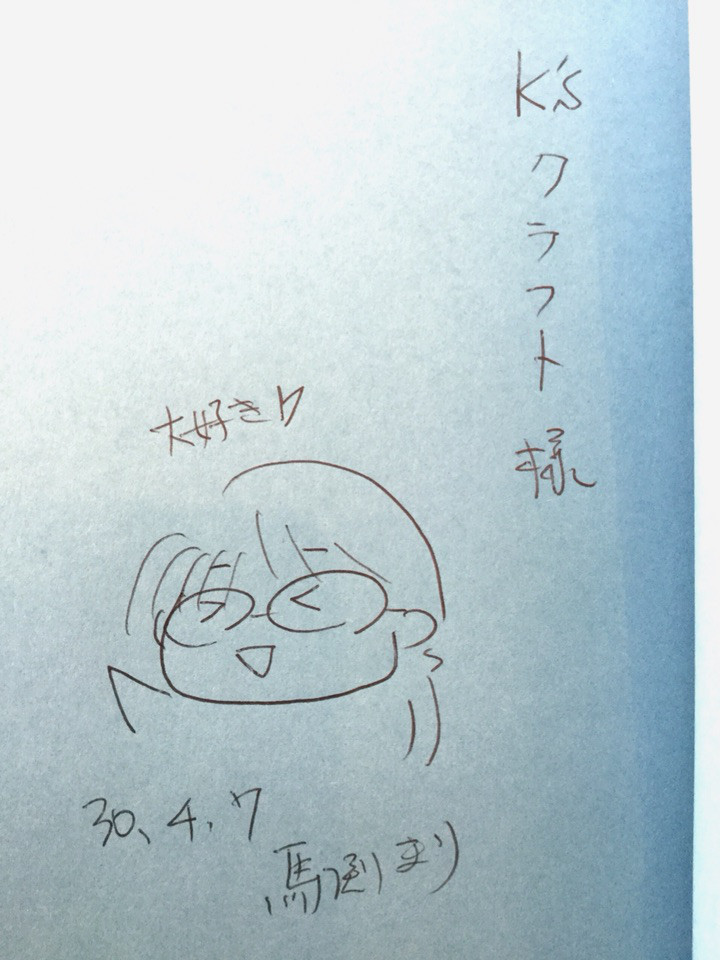 K'sクラフト様
大好き♡
30.4.7
馬渕まり